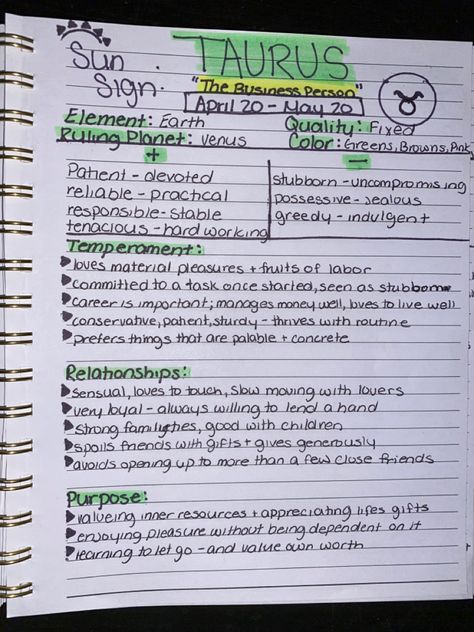 Sun Sign.
TAURUS
"The Business Person"
April 20 - May 20
Element: Earth
Quality: Fixed
Ruling Planet: Venus
Color: Greens, Browns, Pink
+
Patient - devoted
reliable - practical
responsible - stable
tenacious - hard working
−
stubborn - uncompromising
possessive - jealous
greedy - indulgent
Temperament:
loves material pleasures + fruits of labor
committed to a task once started, seen as stubborn
career is important; manages money well, loves to live well
conservative, patient, sturdy - thrives with routine
prefers things that are palable + concrete
Relationships:
sensual, loves to touch, slow moving with lovers
very loyal - always willing to lend a hand
strong family ties, good with children
spoils friends with gifts + gives generously
avoids opening up to more than a few close friends
Purpose:
valueing inner resources + appreciating lifes gifts
enjoying pleasure without being dependent on it
learning to let go - and value own worth